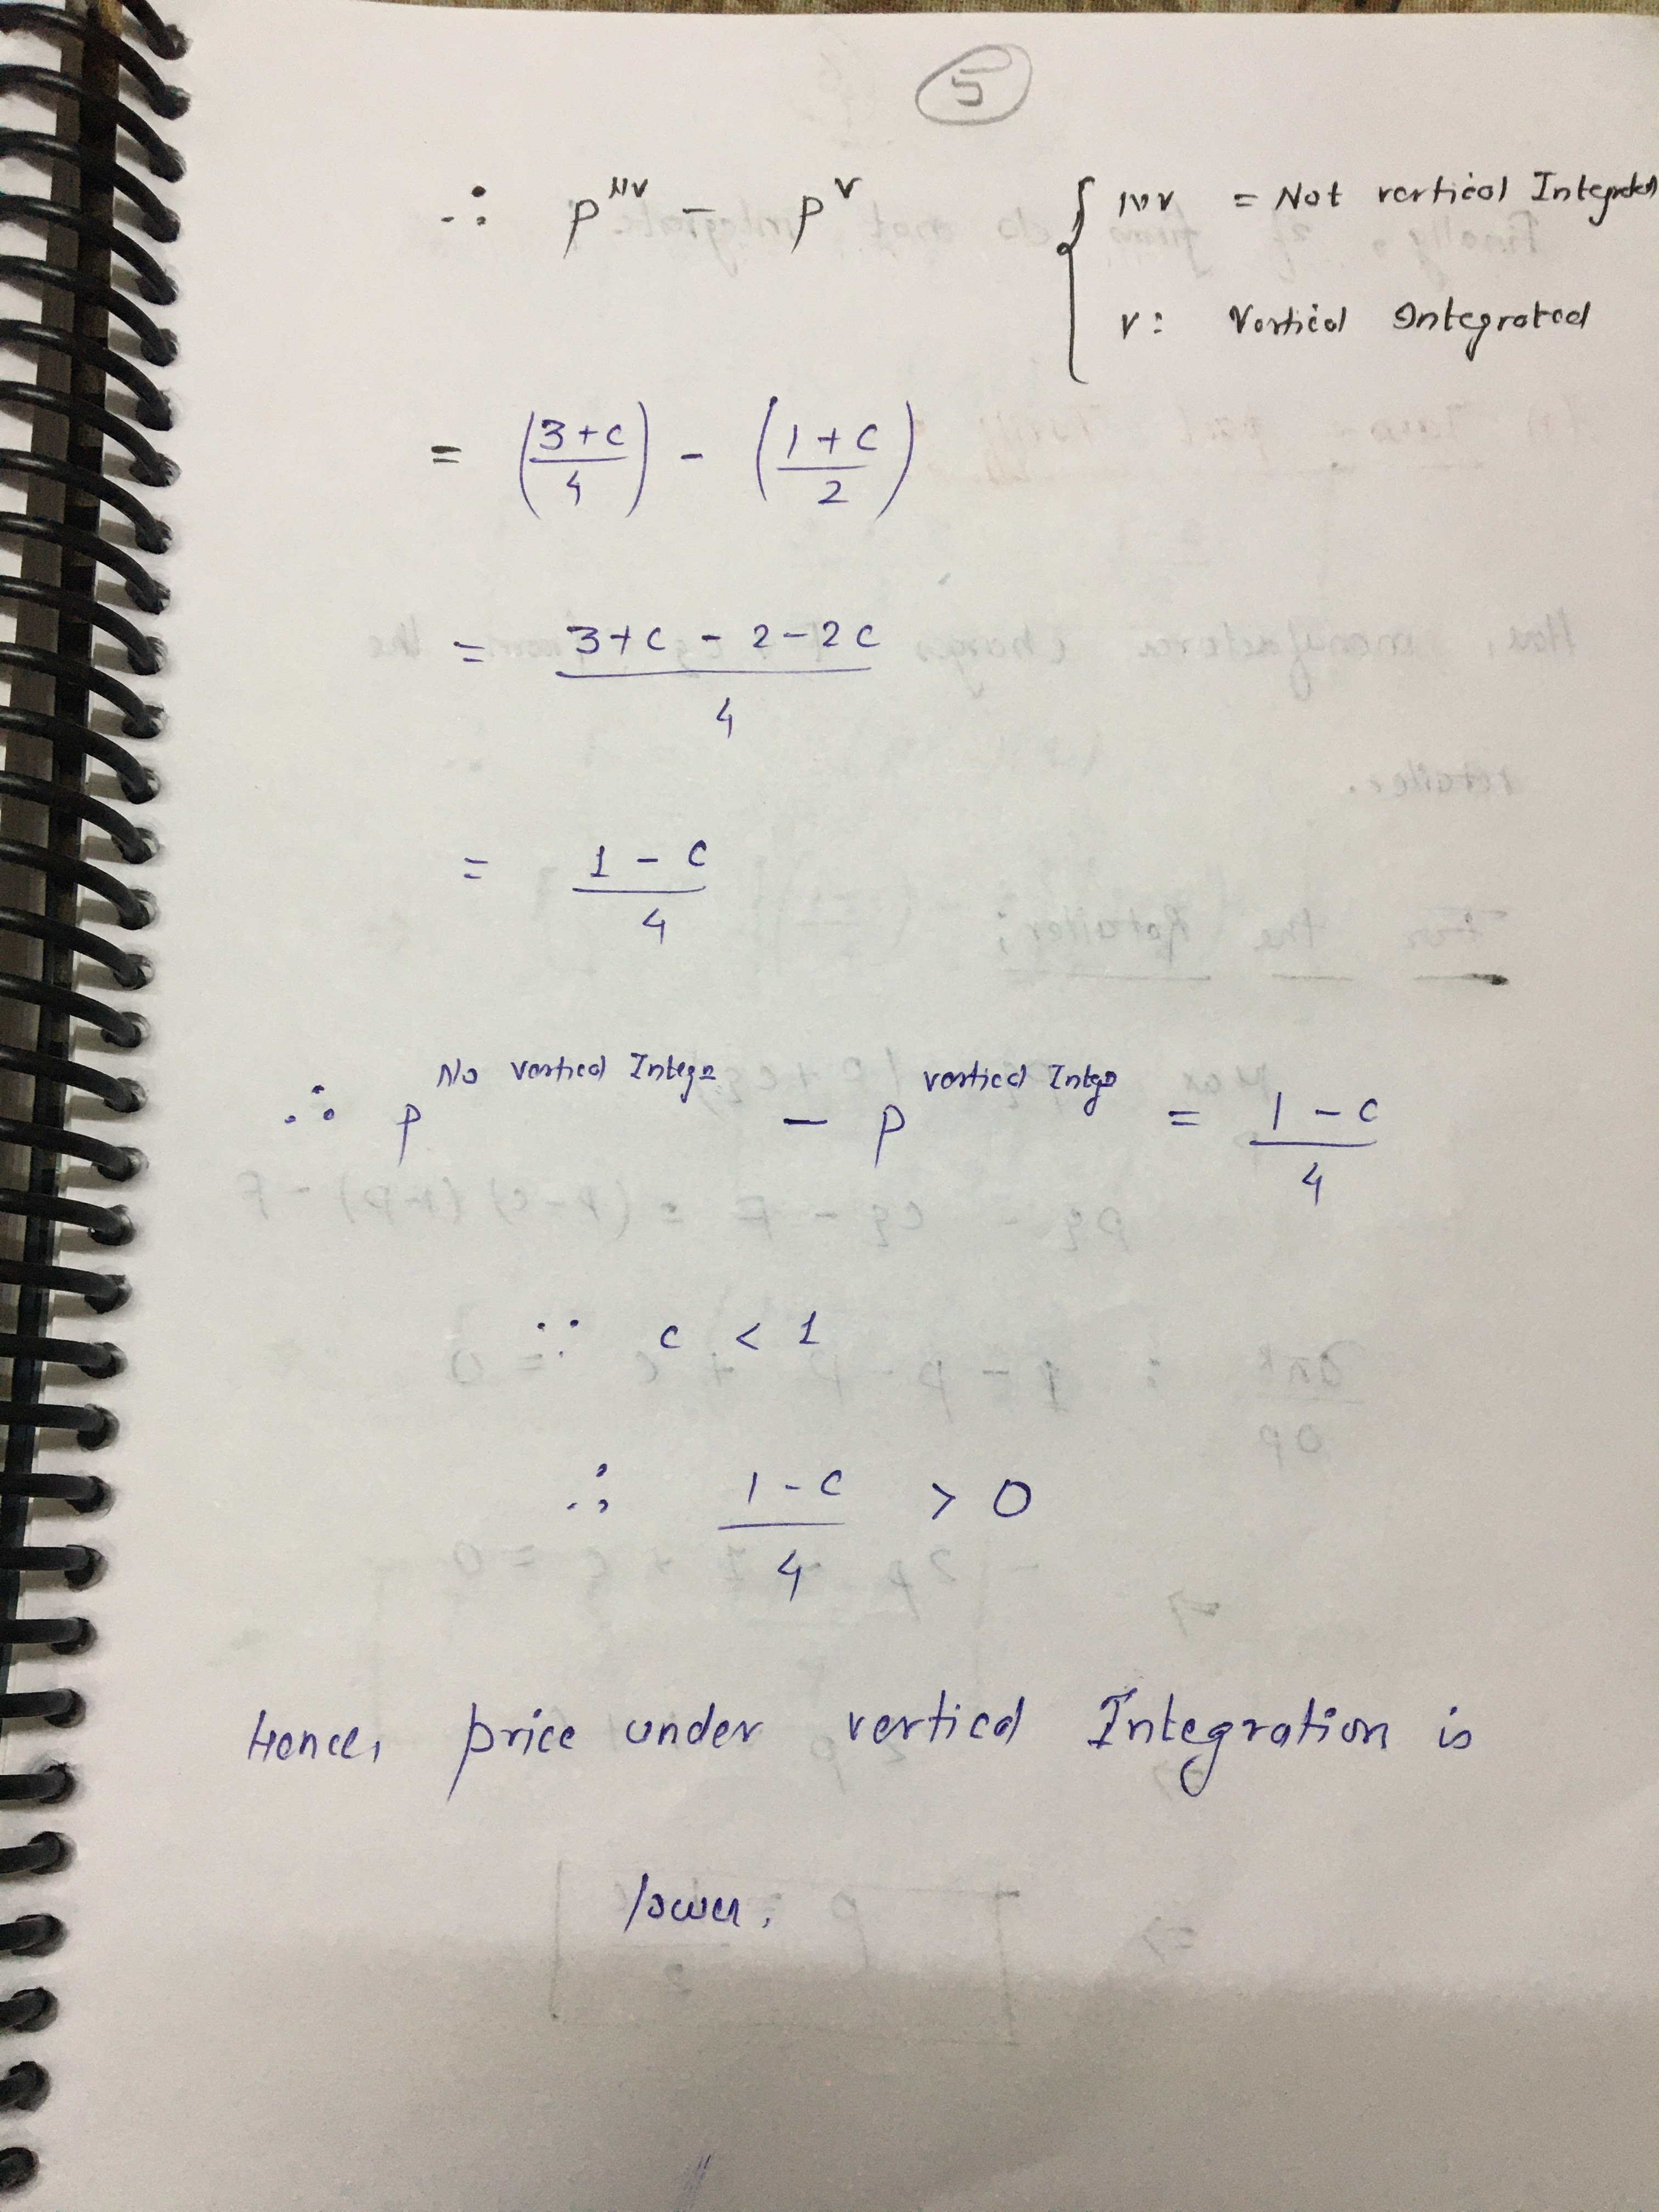 5
∴ P^NV - P^V { NV = Not vertical Integrated
V: Vertical Integrated
= (3+c/4) - (1+c/2)
= 3+c - 2-2c / 4
= 1 - c / 4
∴ P^No vertical Integr - P^vertical Integr = 1 - c / 4
∵ c < 1
∴ 1-c / 4 > 0
Hence, price under vertical Integration is
lower.